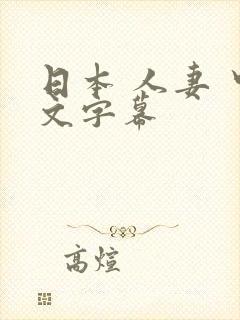 日本 人妻 中
文字幕
高煊